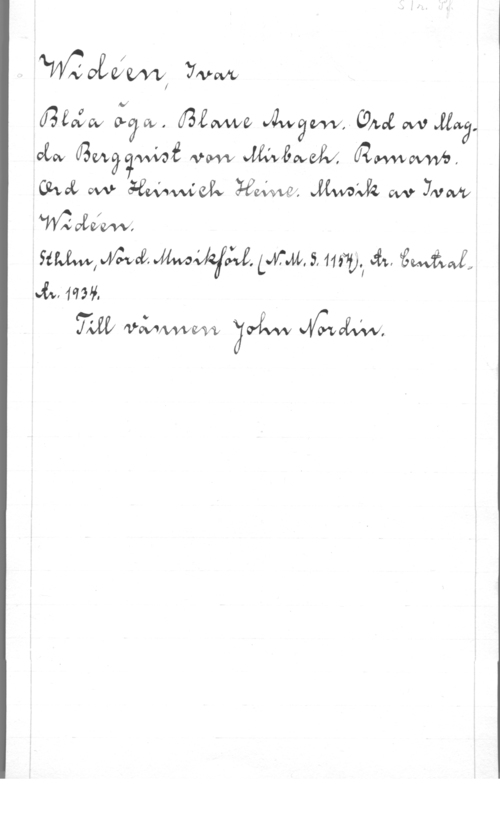 Widéen, Ivar
Blåa öga. Blaue Augen. Ord av Mag-
da Bergquist von Mirbach. Romans.
Ord av Heinrich Heine. Musik av Ivar
Widéen.
Sthlm, Nord. Musikförl. (N.M.S. 1157), tr. Central-
tr. 1934.
Till vännen John Nordin.